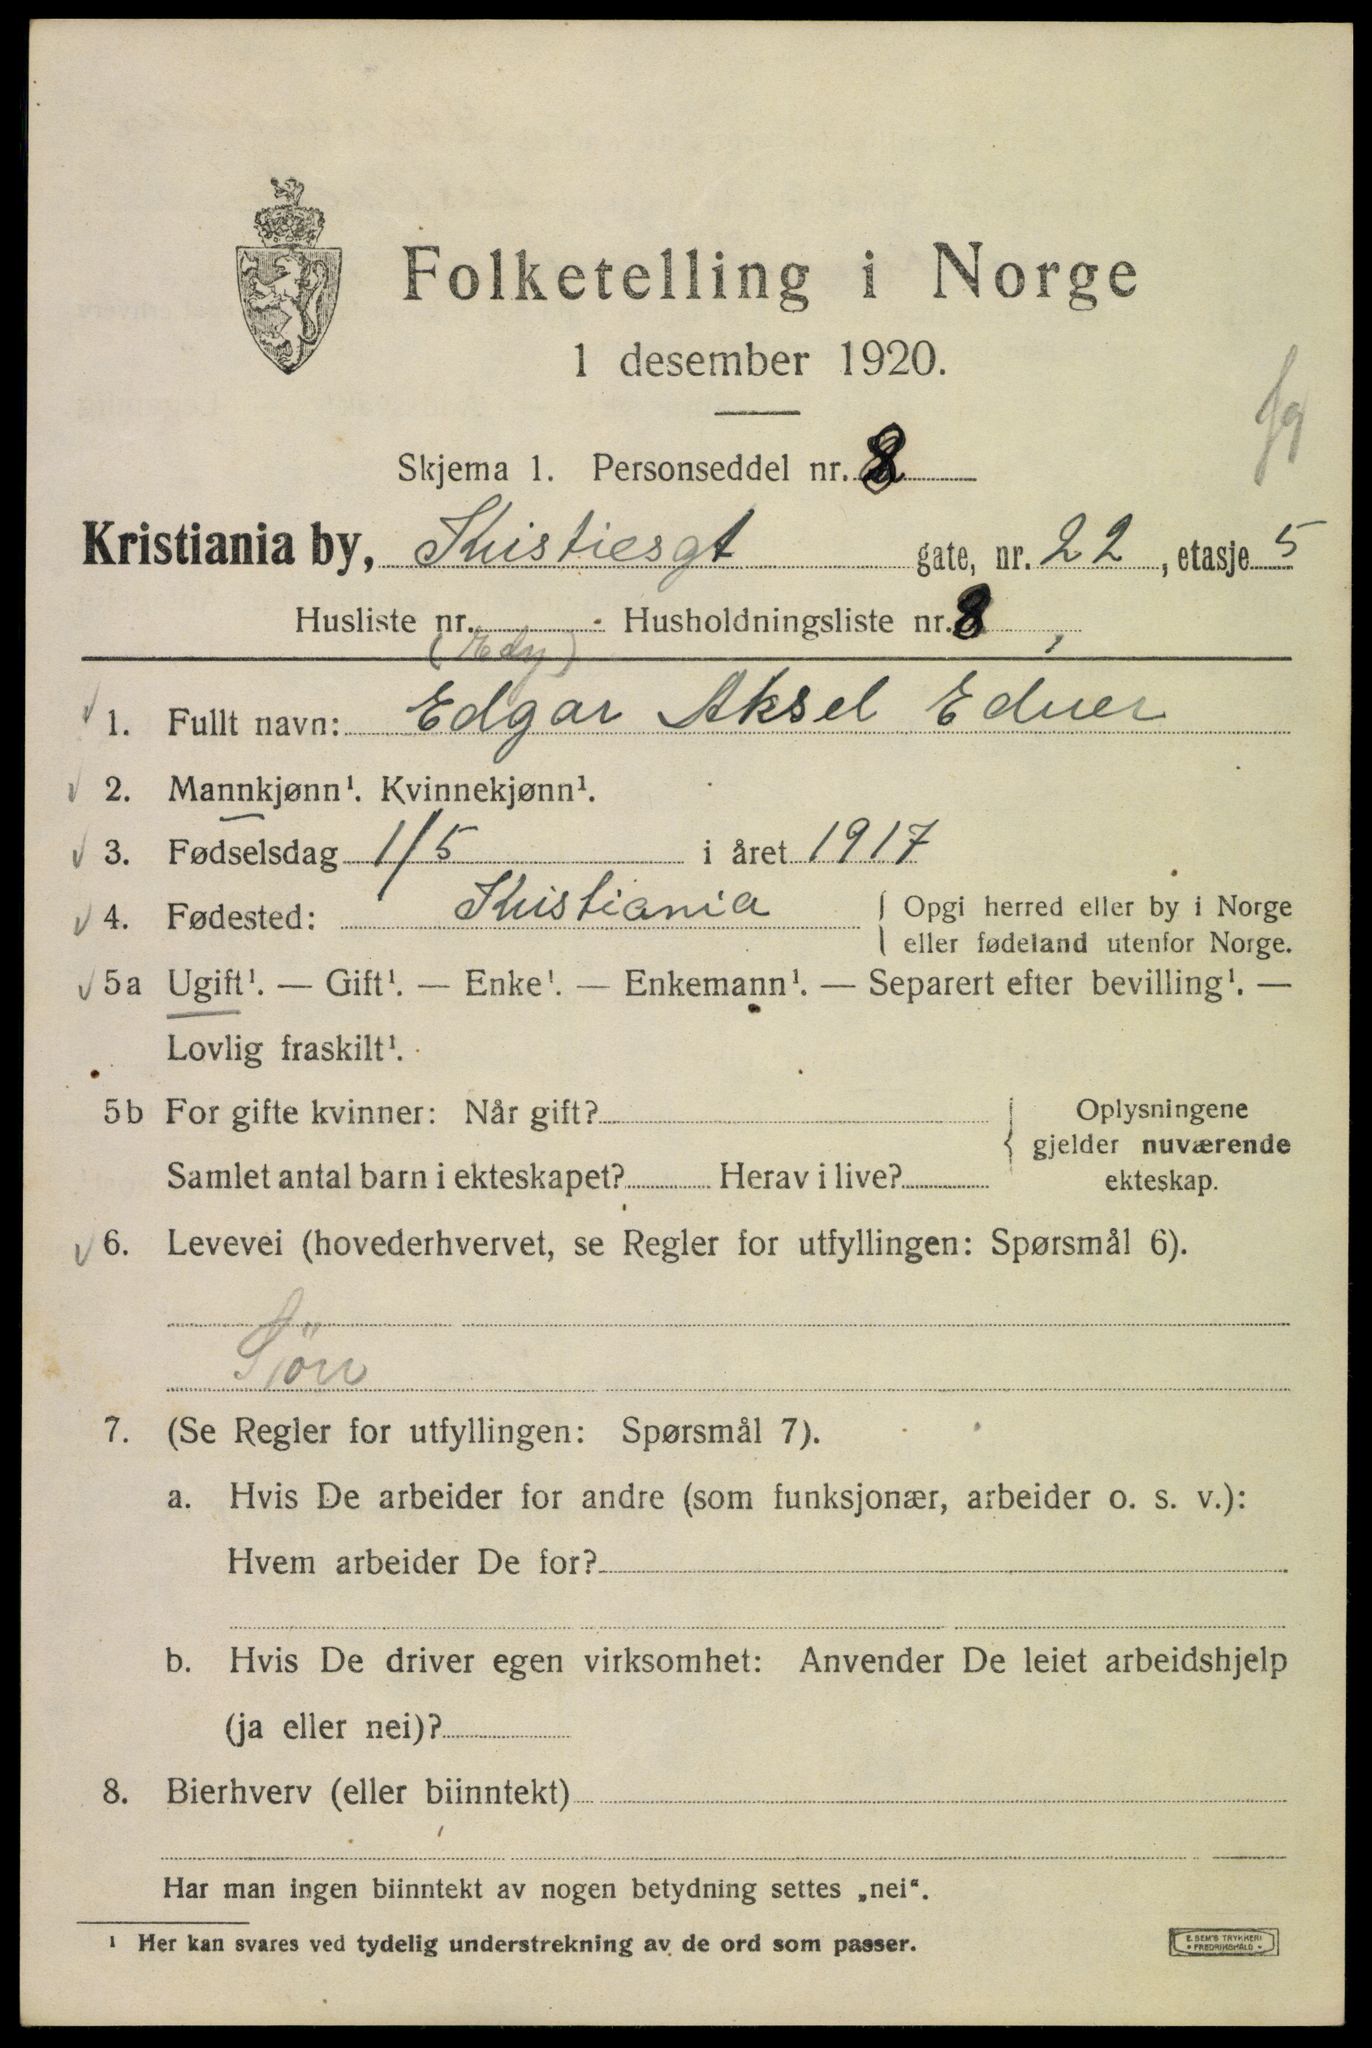 Folketelling i Norge
1 desember 1920.
Skjema 1. Personseddel nr. 8
Kristiania by, Kristiesgt gate, nr. 22, etasje 5
Husliste nr. Husholdningsliste nr. 8,
(Edy)
1. Fullt navn: Edgar Aksel Edner
2. Mannkjønn¹. Kvinnekjønn¹.
3. Fødselsdag 1/5 i året 1917
4. Fødested: Kristiania { Opgi herred eller by i Norge
eller fødeland utenfor Norge.
5a Ugift¹. — Gift¹. — Enke¹. — Enkemann¹. — Separert efter bevilling¹. —
Lovlig fraskilt¹.
5b For gifte kvinner: Når gift? { Oplysningene
gjelder nuværende
Samlet antal barn i ekteskapet? Herav i live? ekteskap.
6. Levevei (hovederhvervet, se Regler for utfyllingen: Spørsmål 6).
Sön
7. (Se Regler for utfyllingen: Spørsmål 7).
a. Hvis De arbeider for andre (som funksjonær, arbeider o. s. v.):
Hvem arbeider De for?
b. Hvis De driver egen virksomhet: Anvender De leiet arbeidshjelp
(ja eller nei)?
8. Bierhverv (eller biinntekt)
Har man ingen biinntekt av nogen betydning settes „nei“.
¹ Her kan svares ved tydelig understrekning av de ord som passer.
E. SEM'S TRYKKERI
FREDRIKSHALD